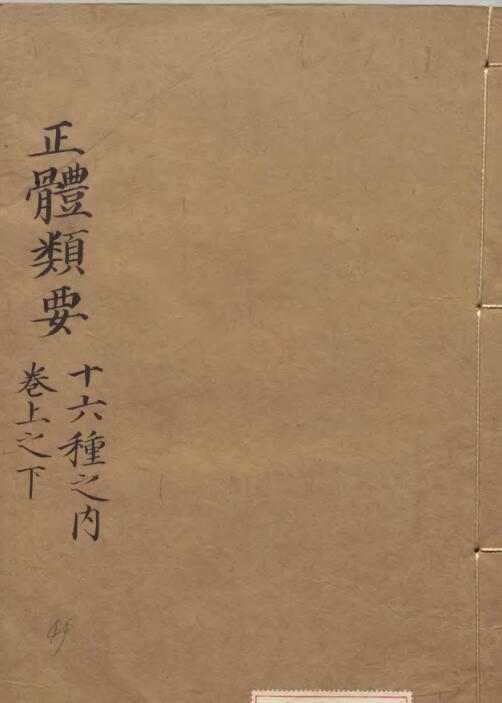 正體類要
十六種之内
巻上之下